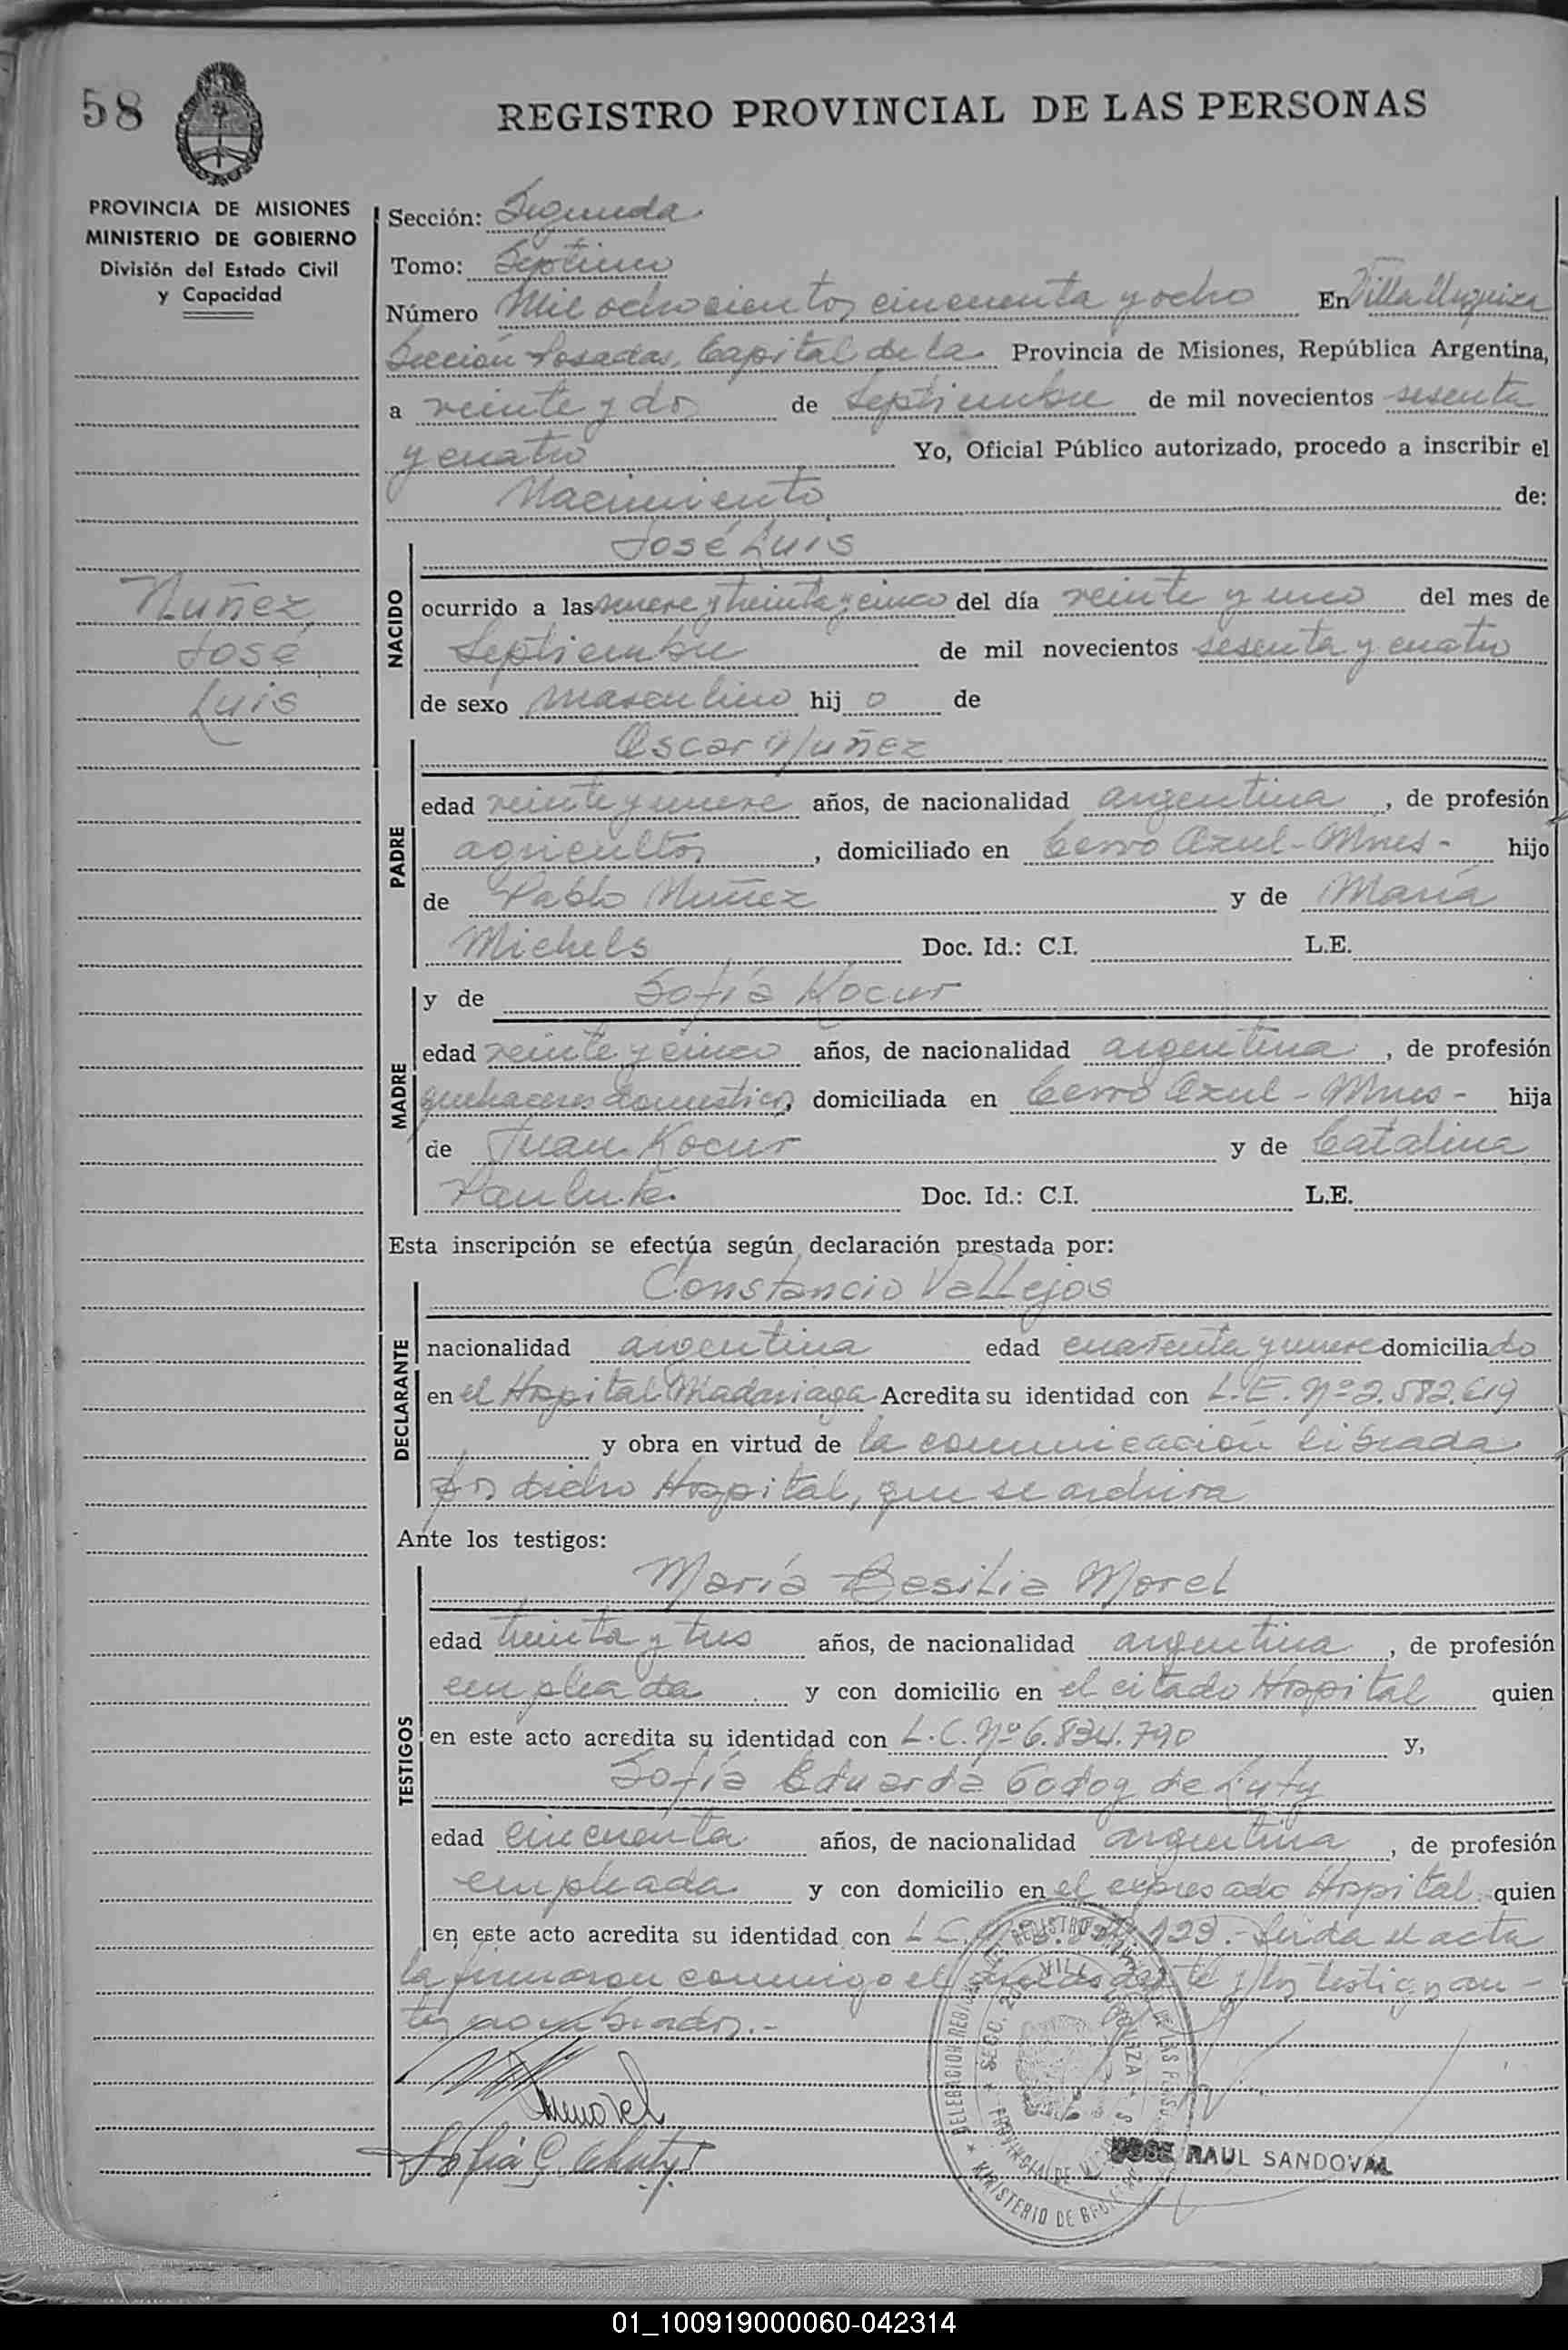 58
REGISTRO PROVINCIAL DE LAS PERSONAS
PROVINCIA DE MISIONES
MINISTERIO DE GOBIERNO
División del Estado Civil
y Capacidad
Sección: Segunda
Tomo: Septimo
Número Mil ochocientos cincuenta y ocho En Villa Urquiza
Sección Posadas, Capital de la Provincia de Misiones, República Argentina,
a veinte y dos de Septiembre de mil novecientos sesenta
y cuatro Yo, Oficial Público autorizado, procedo a inscribir el
Nacimiento de:
Nuñez
José
Luis
NACIDO
José Luis
ocurrido a las nueve y treinta y cinco del día veinte y uno del mes de
Septiembre de mil novecientos sesenta y cuatro
de sexo masculino hij o de
PADRE
Oscar Nuñez
edad veinte y nueve años, de nacionalidad argentina, de profesión
agricultor, domiciliado en Cerro Azul - Mnes - hijo
de Pablo Nuñez y de María
Michels Doc. Id.: C.I. L.E.
MADRE
y de Sofía Kocur
edad veinte y cinco años, de nacionalidad argentina, de profesión
quehaceres domesticos, domiciliada en Cerro Azul - Mnes - hija
de Juan Kocur y de Catalina
Pauluk Doc. Id.: C.I. L.E.
Esta inscripción se efectúa según declaración prestada por:
DECLARANTE
Constancio Vallejos
nacionalidad argentina edad cuarenta y nueve domiciliado
en el Hospital Madariaga Acredita su identidad con L.E. Nº 2.582.619
y obra en virtud de la comunicación librada
por dicho Hospital, que se archiva
Ante los testigos:
TESTIGOS
María Basilia Morel
edad treinta y tres años, de nacionalidad argentina, de profesión
empleada y con domicilio en el citado Hospital quien
en este acto acredita su identidad con L.C. Nº 6.834.790 y,
Sofía Eduarda Godoy de Luty
edad cincuenta años, de nacionalidad argentina, de profesión
empleada y con domicilio en el expresado Hospital quien
en este acto acredita su identidad con L.C. 123.- Leída el acta
la firmaron conmigo el y los testigos an-
tes nombrados.-
Sofia G.
JOSE RAUL SANDOVAL
01_100919000060-042314